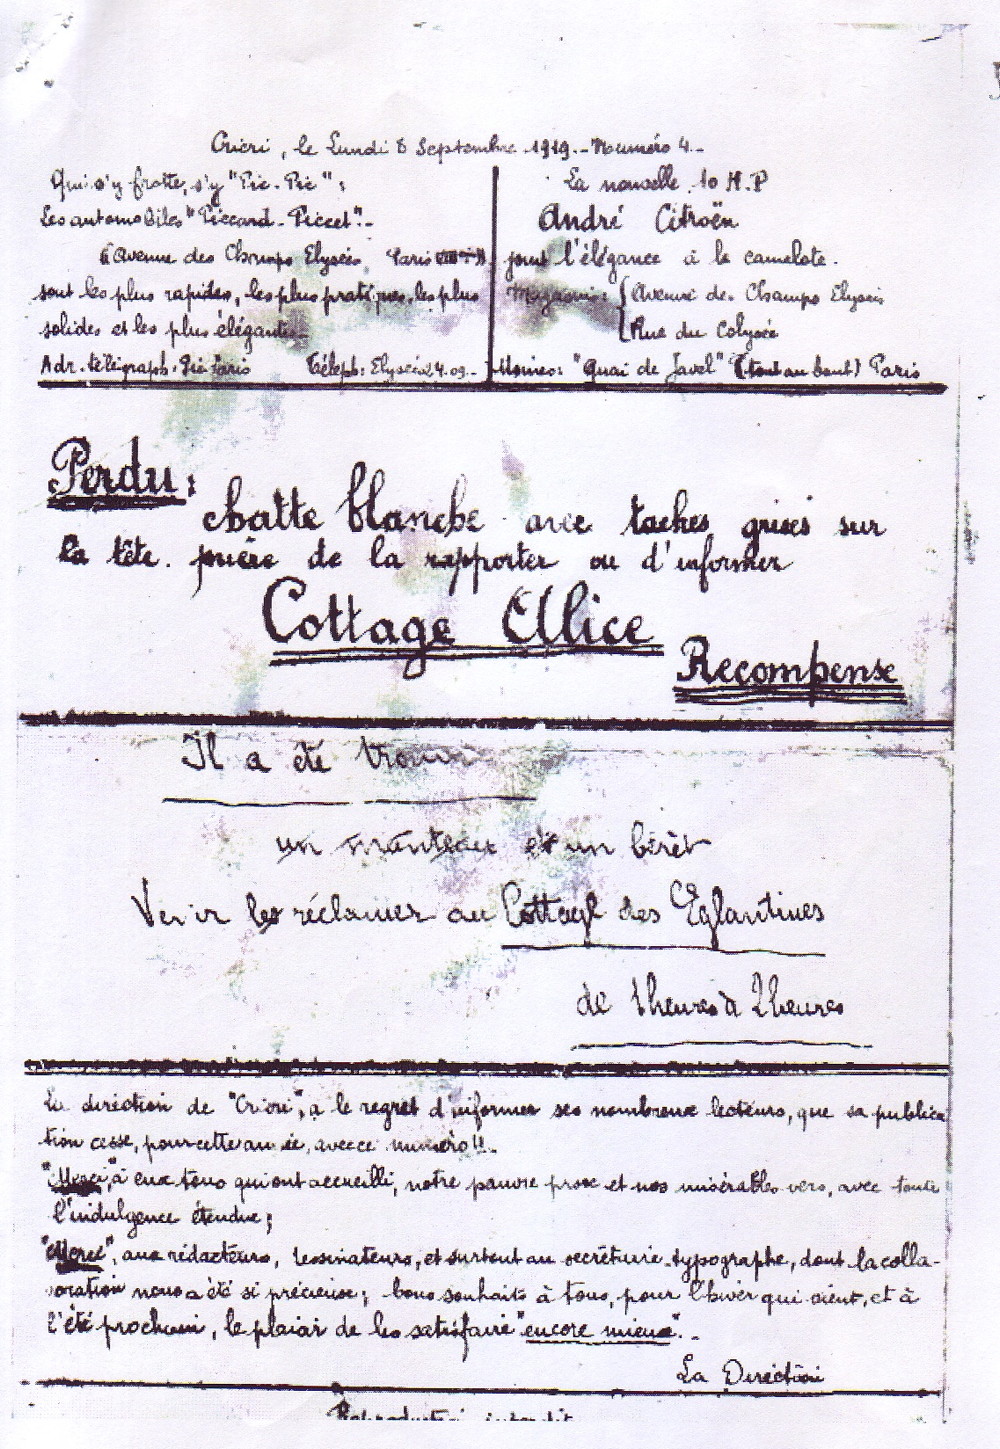 Cricri, le Lundi 8 Septembre 1919.- Numéro 4.-
Qui s'y frotte, s'y "Pic-Pic":
Les automobiles "Piccard-Piccet".-
6 Avenue des Champs Elysées, Paris
sont les plus rapides, les plus pratiques, les plus
solides et les plus élégantes.-
Adr. télégraph: Pic-Paris Téleph: Elysée 24.09.-
La nouvelle 10 H.P
André Citroën
joint l'élégance à la camelote.
Magasins: Avenue des Champs Elysées
Rue du Colysée
Usines: "Quai de Javel" (tout au bout) Paris
Perdu:
chatte blanche avec taches grises sur
la tête. prière de la rapporter ou d'informer
Cottage Alice
Recompense
Il a été trouvé
un manteau et un béret
Venir les réclamer au Cottage des Eglantines
de 1 heures à 2 heures
La direction de "Cricri", a le regret d'informer ses nombreux lecteurs, que sa publica
tion cesse, pour cette année, avec ce numéro!!.
"Merci", à eux tous qui ont accueilli, notre pauvre prose et nos misérables vers, avec toute
l'indulgence étendue;
"Merci", aux rédacteurs, dessinateurs, et surtout au secrétaire-typographe, dont la colla-
boration nous a été si précieuse; bons souhaits à tous, pour l'hiver qui vient, et à
l'été prochain, le plaisir de les satisfaire "encore mieux".-
La Direction
Reproduction interdite